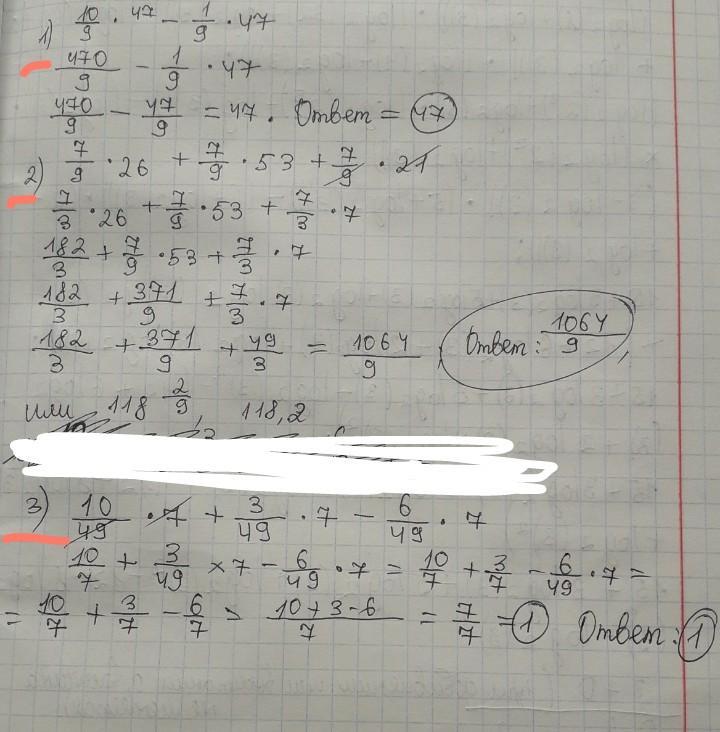 1) 10/9 · 47 − 1/9 · 47
470/9 − 1/9 · 47
470/9 − 47/9 = 47. Ответ = 47
2) 7/9 · 26 + 7/9 · 53 + 7/9 · 21
7/3 · 26 + 7/9 · 53 + 7/3 · 7
182/3 + 7/9 · 53 + 7/3 · 7
182/3 + 371/9 + 7/3 · 7
182/3 + 371/9 + 49/3 = 1064/9 Ответ: 1064/9,
или 118 2/9, 118,2
3) 10/49 · 7 + 3/49 · 7 − 6/49 · 7
10/7 + 3/49 × 7 − 6/49 · 7 = 10/7 + 3/7 − 6/49 · 7 =
= 10/7 + 3/7 − 6/7 > 10+3-6/7 = 7/7 = 1 Ответ: 1